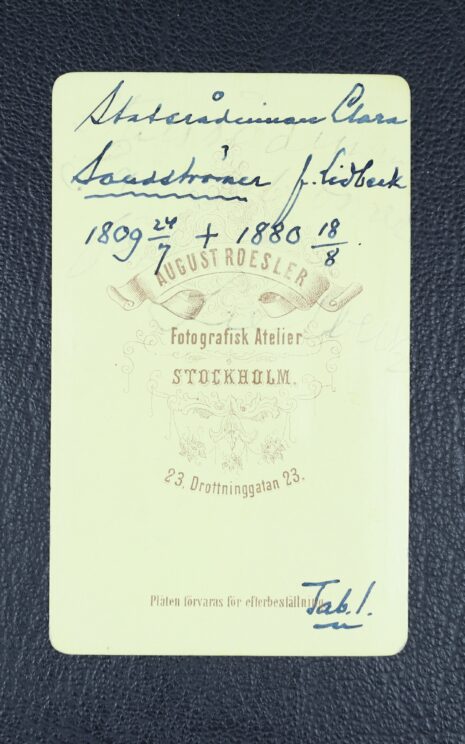 Statsrådinnan Clara
Sandströmer f. Lidbeck
1809 24/7 + 1880 18/8.
AUGUST ROESLER
Fotografisk Atelier
STOCKHOLM.
23. Drottninggatan 23.
Platen förvaras för efterbeställning.
Tab. 1.